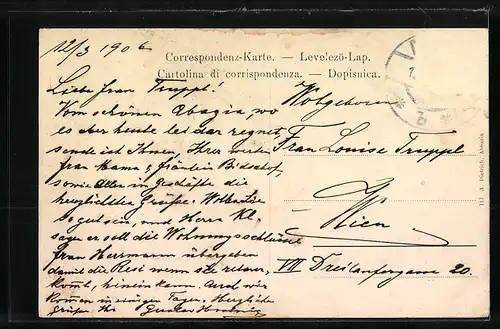 12/3 1906
Correspondenz-Karte. — Levelezö-Lap.
Cartolina di corrispondenza. — Dopisnica.
Liebe Frau Truppl!
Vom schönen Abazia, wo
es aber heute leider regnet,
sende ich Ihnen, Herr
Frau Mama, Fräulein
sowie Allen im Geschäfte die
herzlichsten Grüße. Wollen Sie
so gut sein, und Herrn
sagen er soll die Wohnungsschlüssel
Frau Herrmann übergeben
damit die Resi wenn sie
kommt, hinein kann. Und wir
kommen in einigen Tagen. Herzliche
Grüße Ihr Gustav
Wohlgeboren
Frau Louise Truppl
Wien
VII Dreilaufergasse 20.
117 A. Dietrich, Abbazia